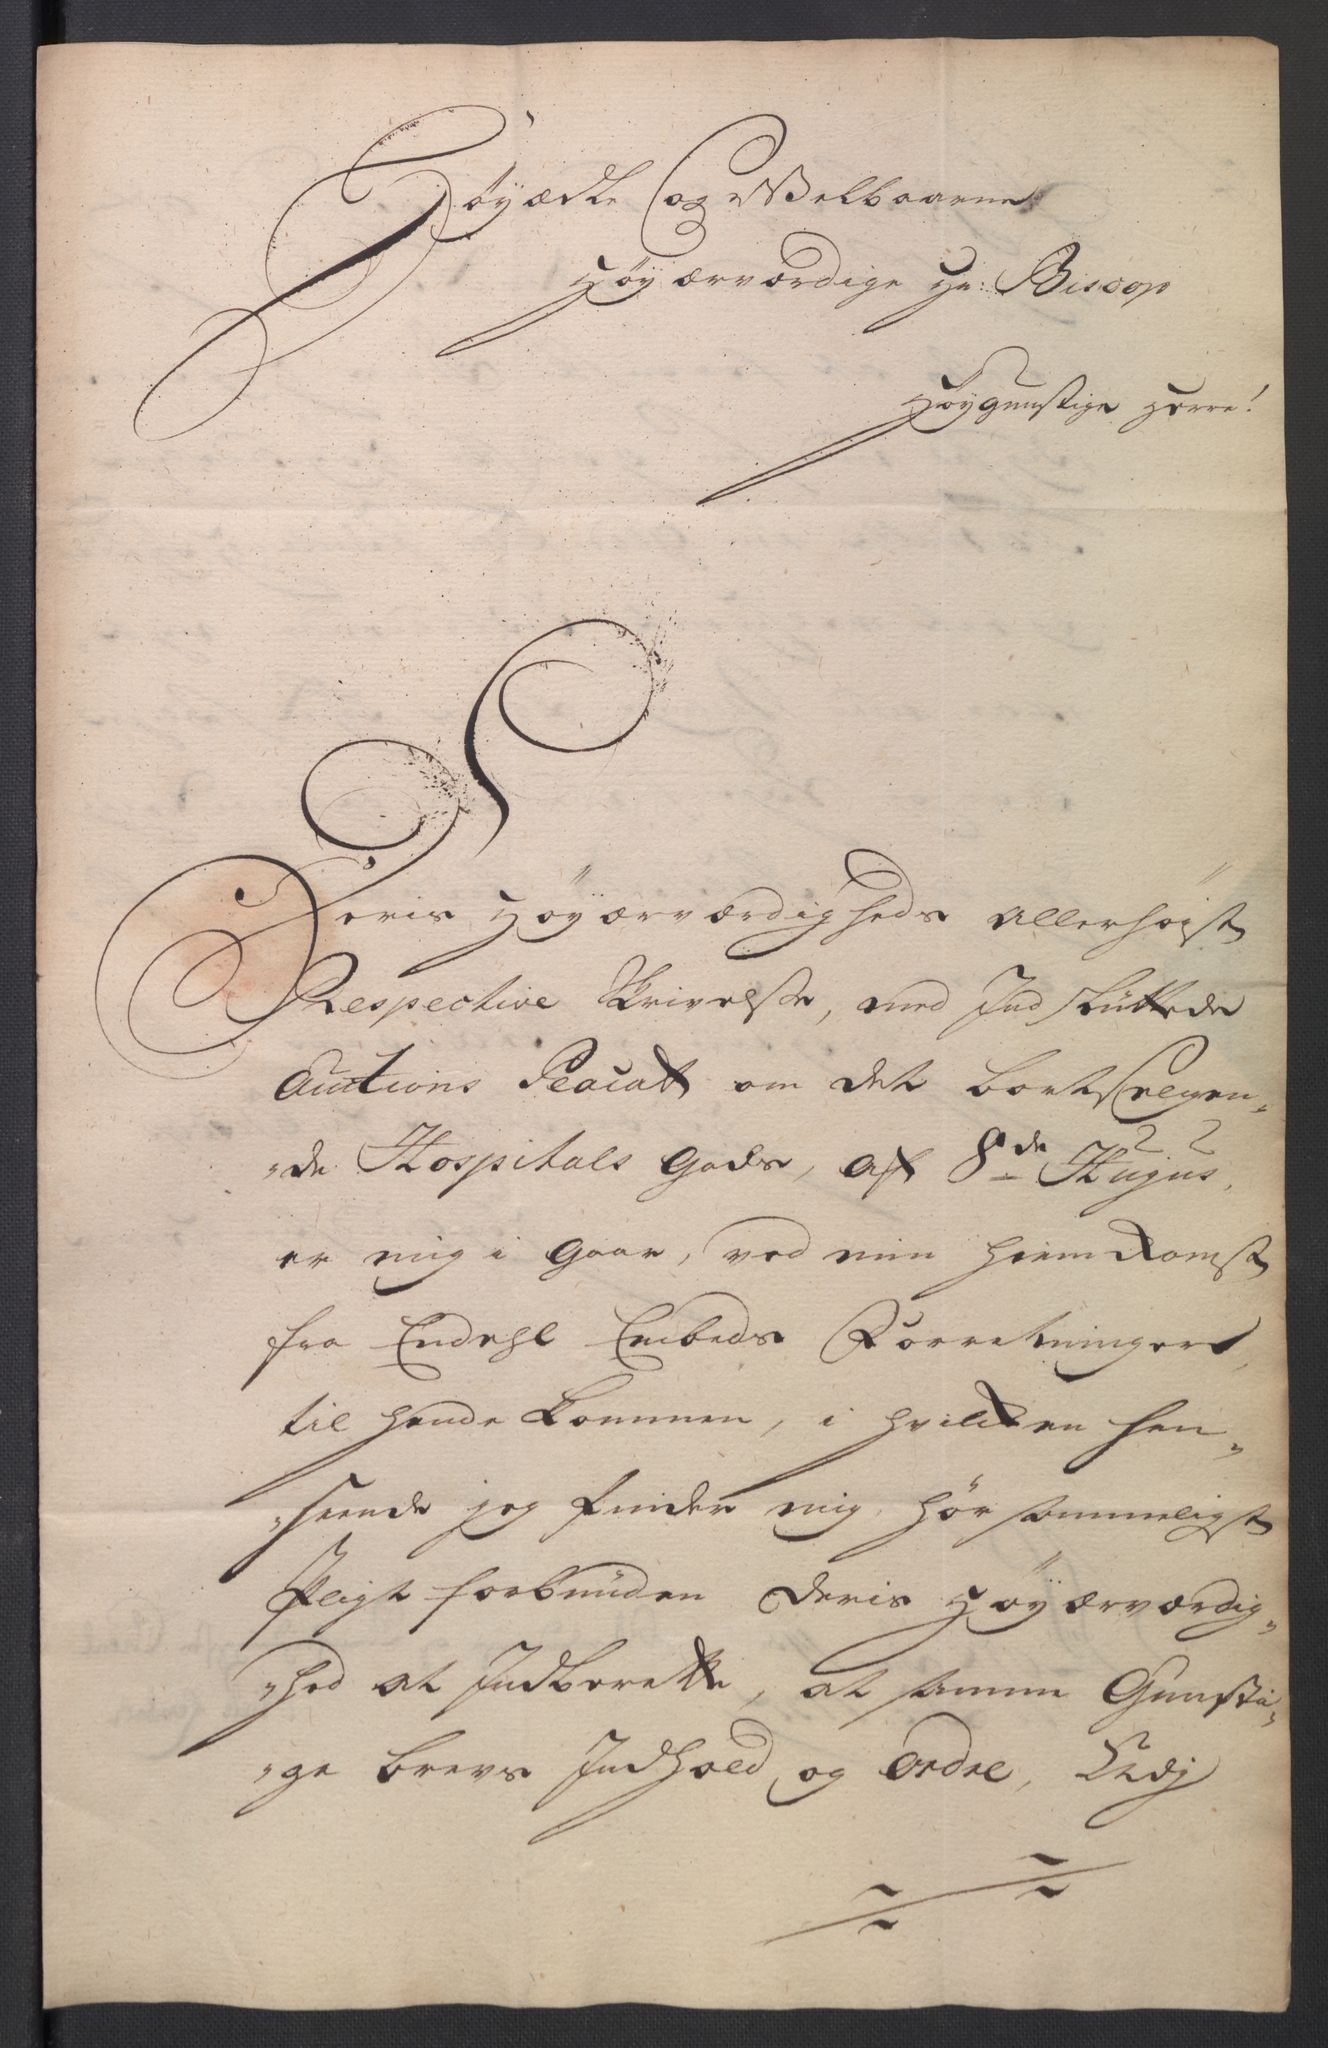 Høyædle og Welbaarne
Høyærværdige Hr: Biscop
Høygunstige Herre!
Deris Høyærværdigheds allerhøist
Respective Skrivelse, med Indsluttede
Auctions Placat om det bortsælgen„
„de Hospitals Gods, af 8de Hujus,
er mig i Gaar, ved min Hiemkomst
fra Endehl Embeds Forretninger,
til hænde kommen, i hvilken hen„
„seende jeg finder mig hørsammeligst
Pligt forbunden Deris Høyærværdig„
„hed at Indberette, at samme Gunsti„
„ge brevs Indhold og Ordre,